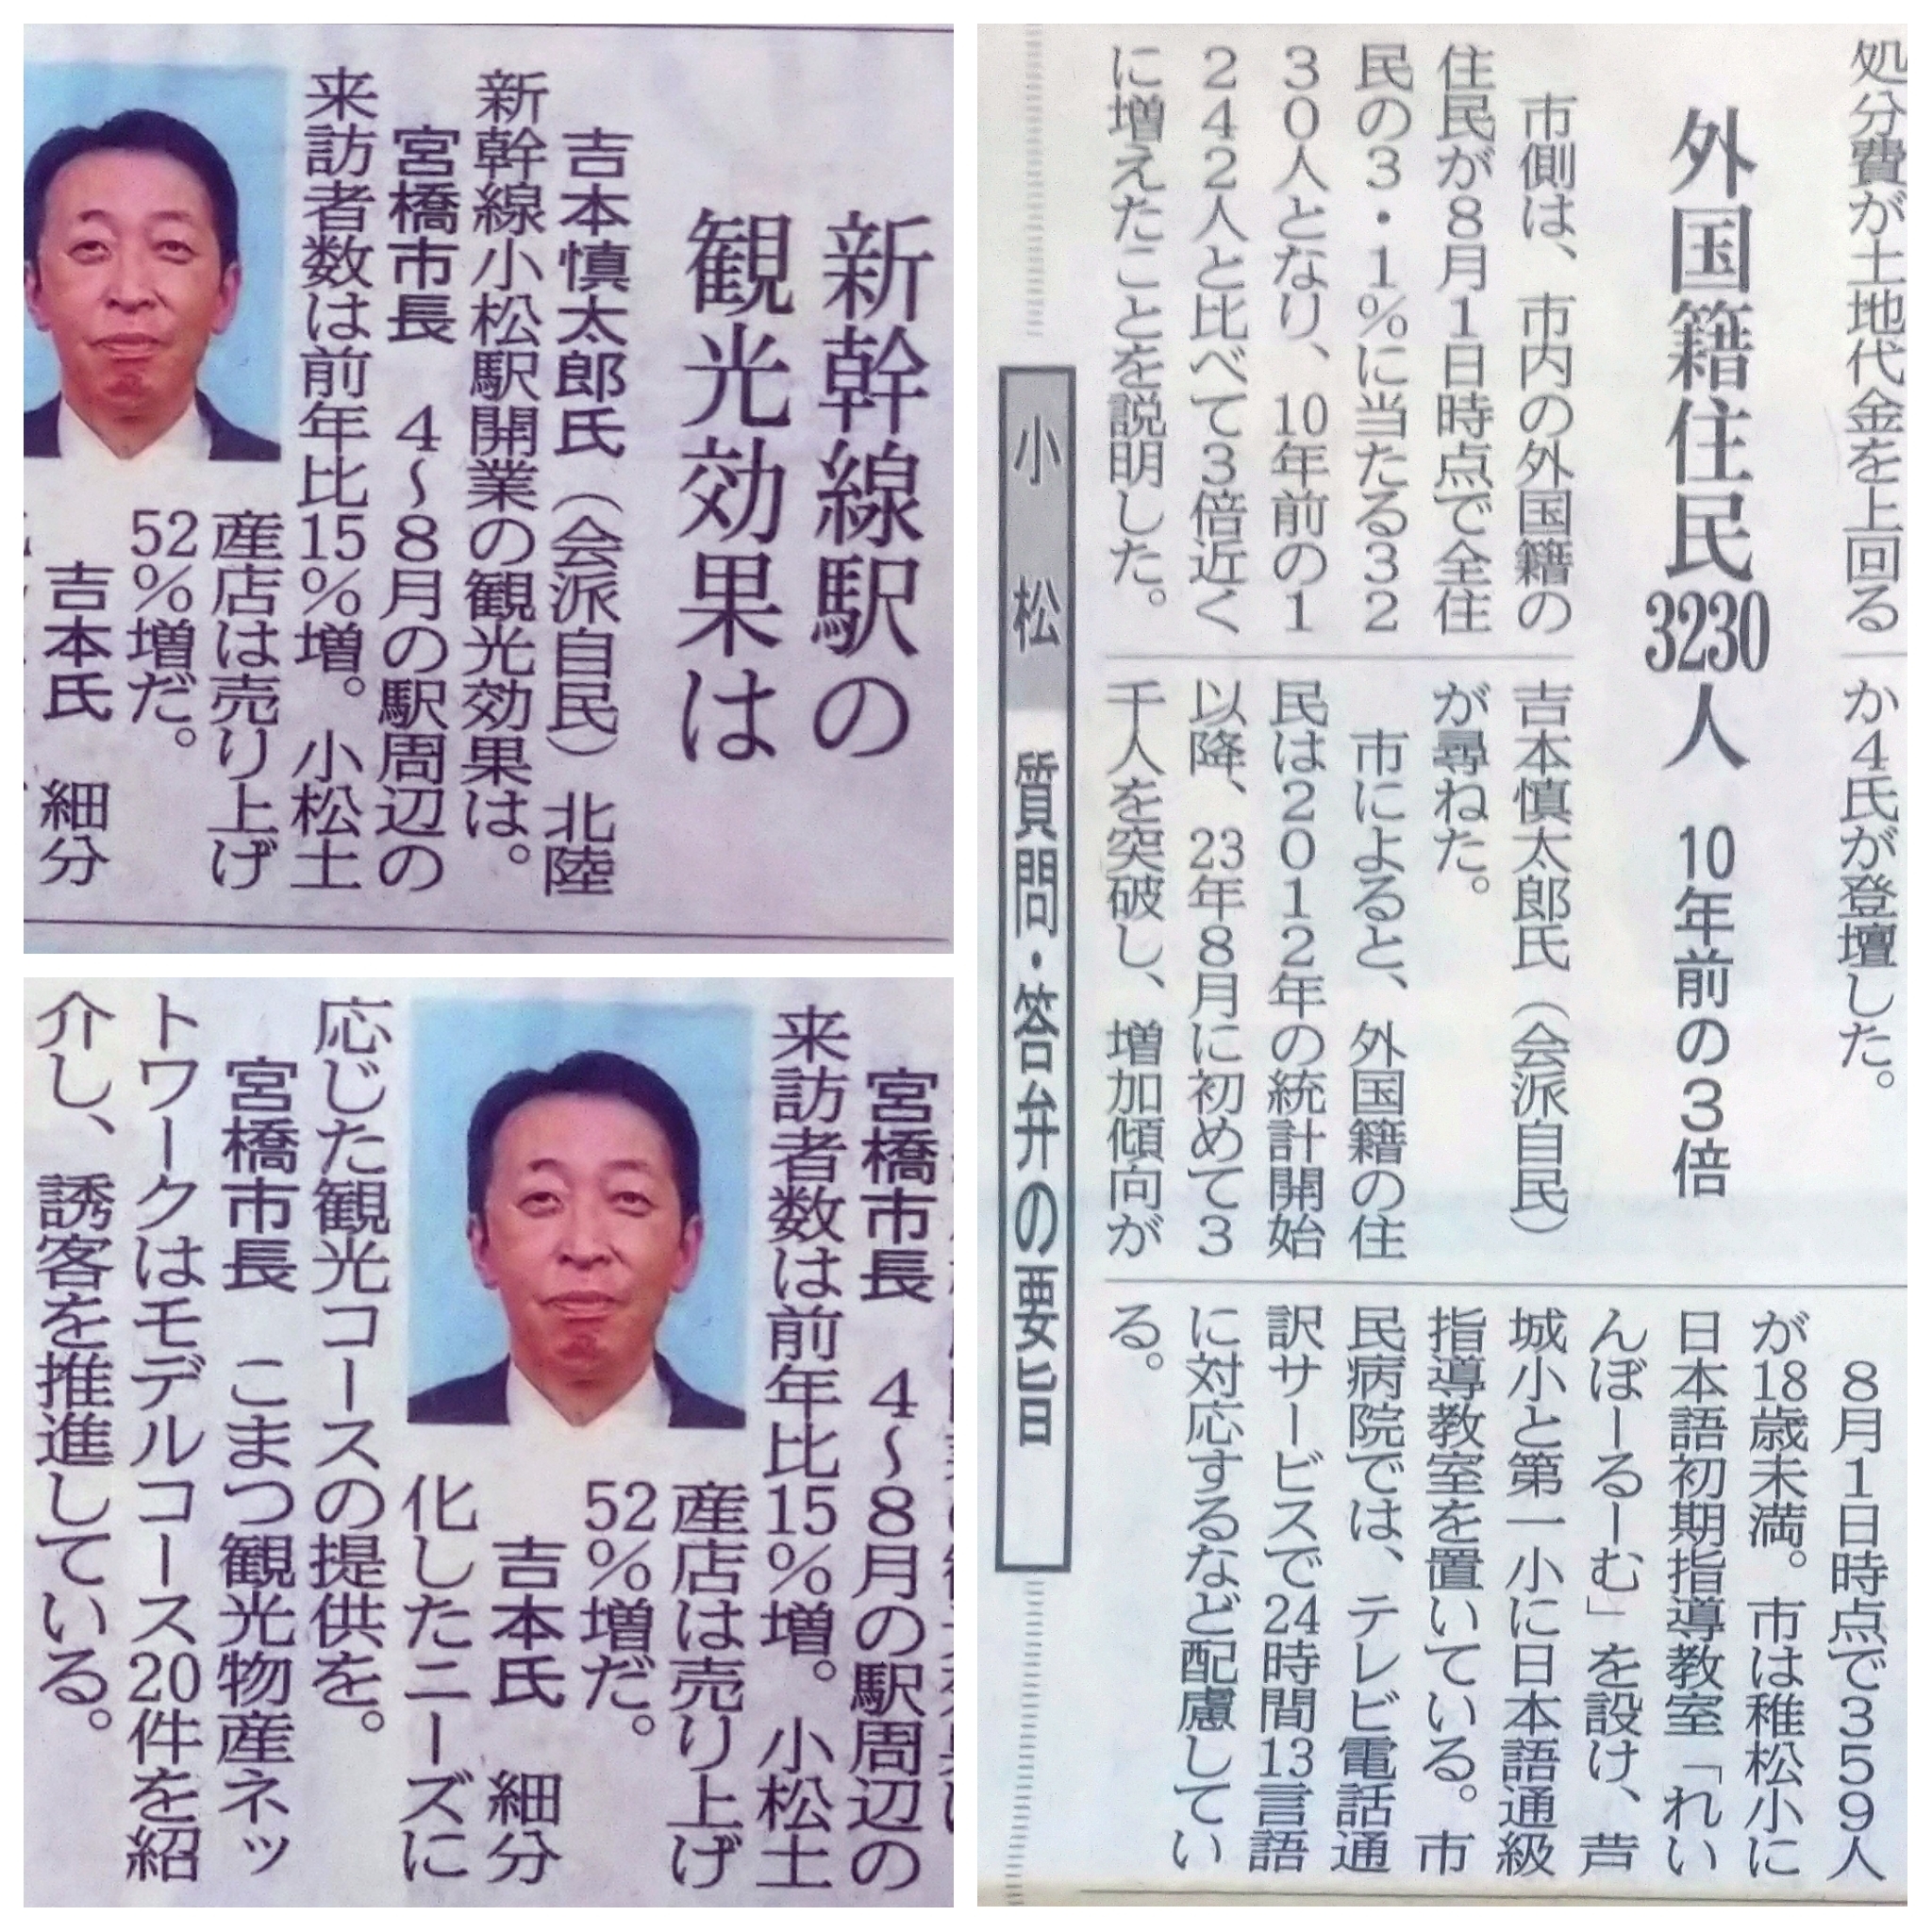 新幹線駅の
観光効果は
吉本慎太郎氏（会派自民）北陸
新幹線小松駅開業の観光効果は。
宮橋市長　4〜8月の駅周辺の
来訪者数は前年比15％増。小松土
産店は売り上げ
52％増だ。
吉本氏　細分
宮橋市長　4〜8月の駅周辺の
来訪者数は前年比15％増。小松土
産店は売り上げ
52％増だ。
吉本氏　細分
化したニーズに
応じた観光コースの提供を。
宮橋市長　こまつ観光物産ネッ
トワークはモデルコース20件を紹
介し、誘客を推進している。
処分費が土地代金を上回る
外国籍住民3230人　10年前の3倍
市側は、市内の外国籍の
住民が8月1日時点で全住
民の3・1％に当たる32
30人となり、10年前の1
242人と比べて3倍近く
に増えたことを説明した。
か4氏が登壇した。
吉本慎太郎氏（会派自民）
が尋ねた。
市によると、外国籍の住
民は2012年の統計開始
以降、23年8月に初めて3
千人を突破し、増加傾向が
8月1日時点で359人
が18歳未満。市は稚松小に
日本語初期指導教室「れい
んぼーるーむ」を設け、芦
城小と第一小に日本語通級
指導教室を置いている。市
民病院では、テレビ電話通
訳サービスで24時間13言語
に対応するなど配慮してい
る。
小松　質問・答弁の要旨